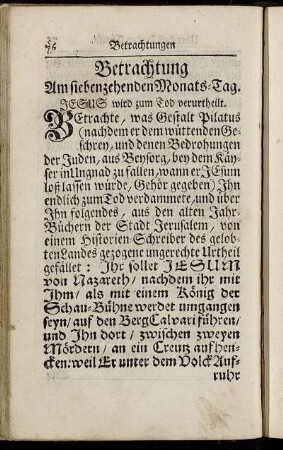 76 Betrachtungen
Betrachtung
Am siebenzehenden Monats-Tag.
JESUS wird zum Tod verurtheilt.
Betrachte, was Gestalt Pilatus
(nachdem er dem wüttenden Ge-
schrey, und denen Bedrohungen
der Juden, aus Beysorg, bey dem Käy-
ser in Ungnad zu fallen, wann er JEsum
loß lassen würde, Gehör gegeben) Ihn
endlich zum Tod verdammete, und über
Ihn folgendes, aus den alten Jahr-
Büchern der Stadt Jerusalem, von
einem Historien-Schreiber des gelob-
ten Landes gezogene ungerechte Urtheil
gefället: Ihr sollet JESUM
von Nazareth/ nachdem ihr mit
Ihm/ als mit einem König der
Schau-Bühne werdet umgangen
seyn/ auf den Berg Calvari führen/
und Ihn dort/ zwischen zweyen
Mördern/ an ein Creutz aufhen-
cken: weil Er unter dem Volck Auf-
ruhr